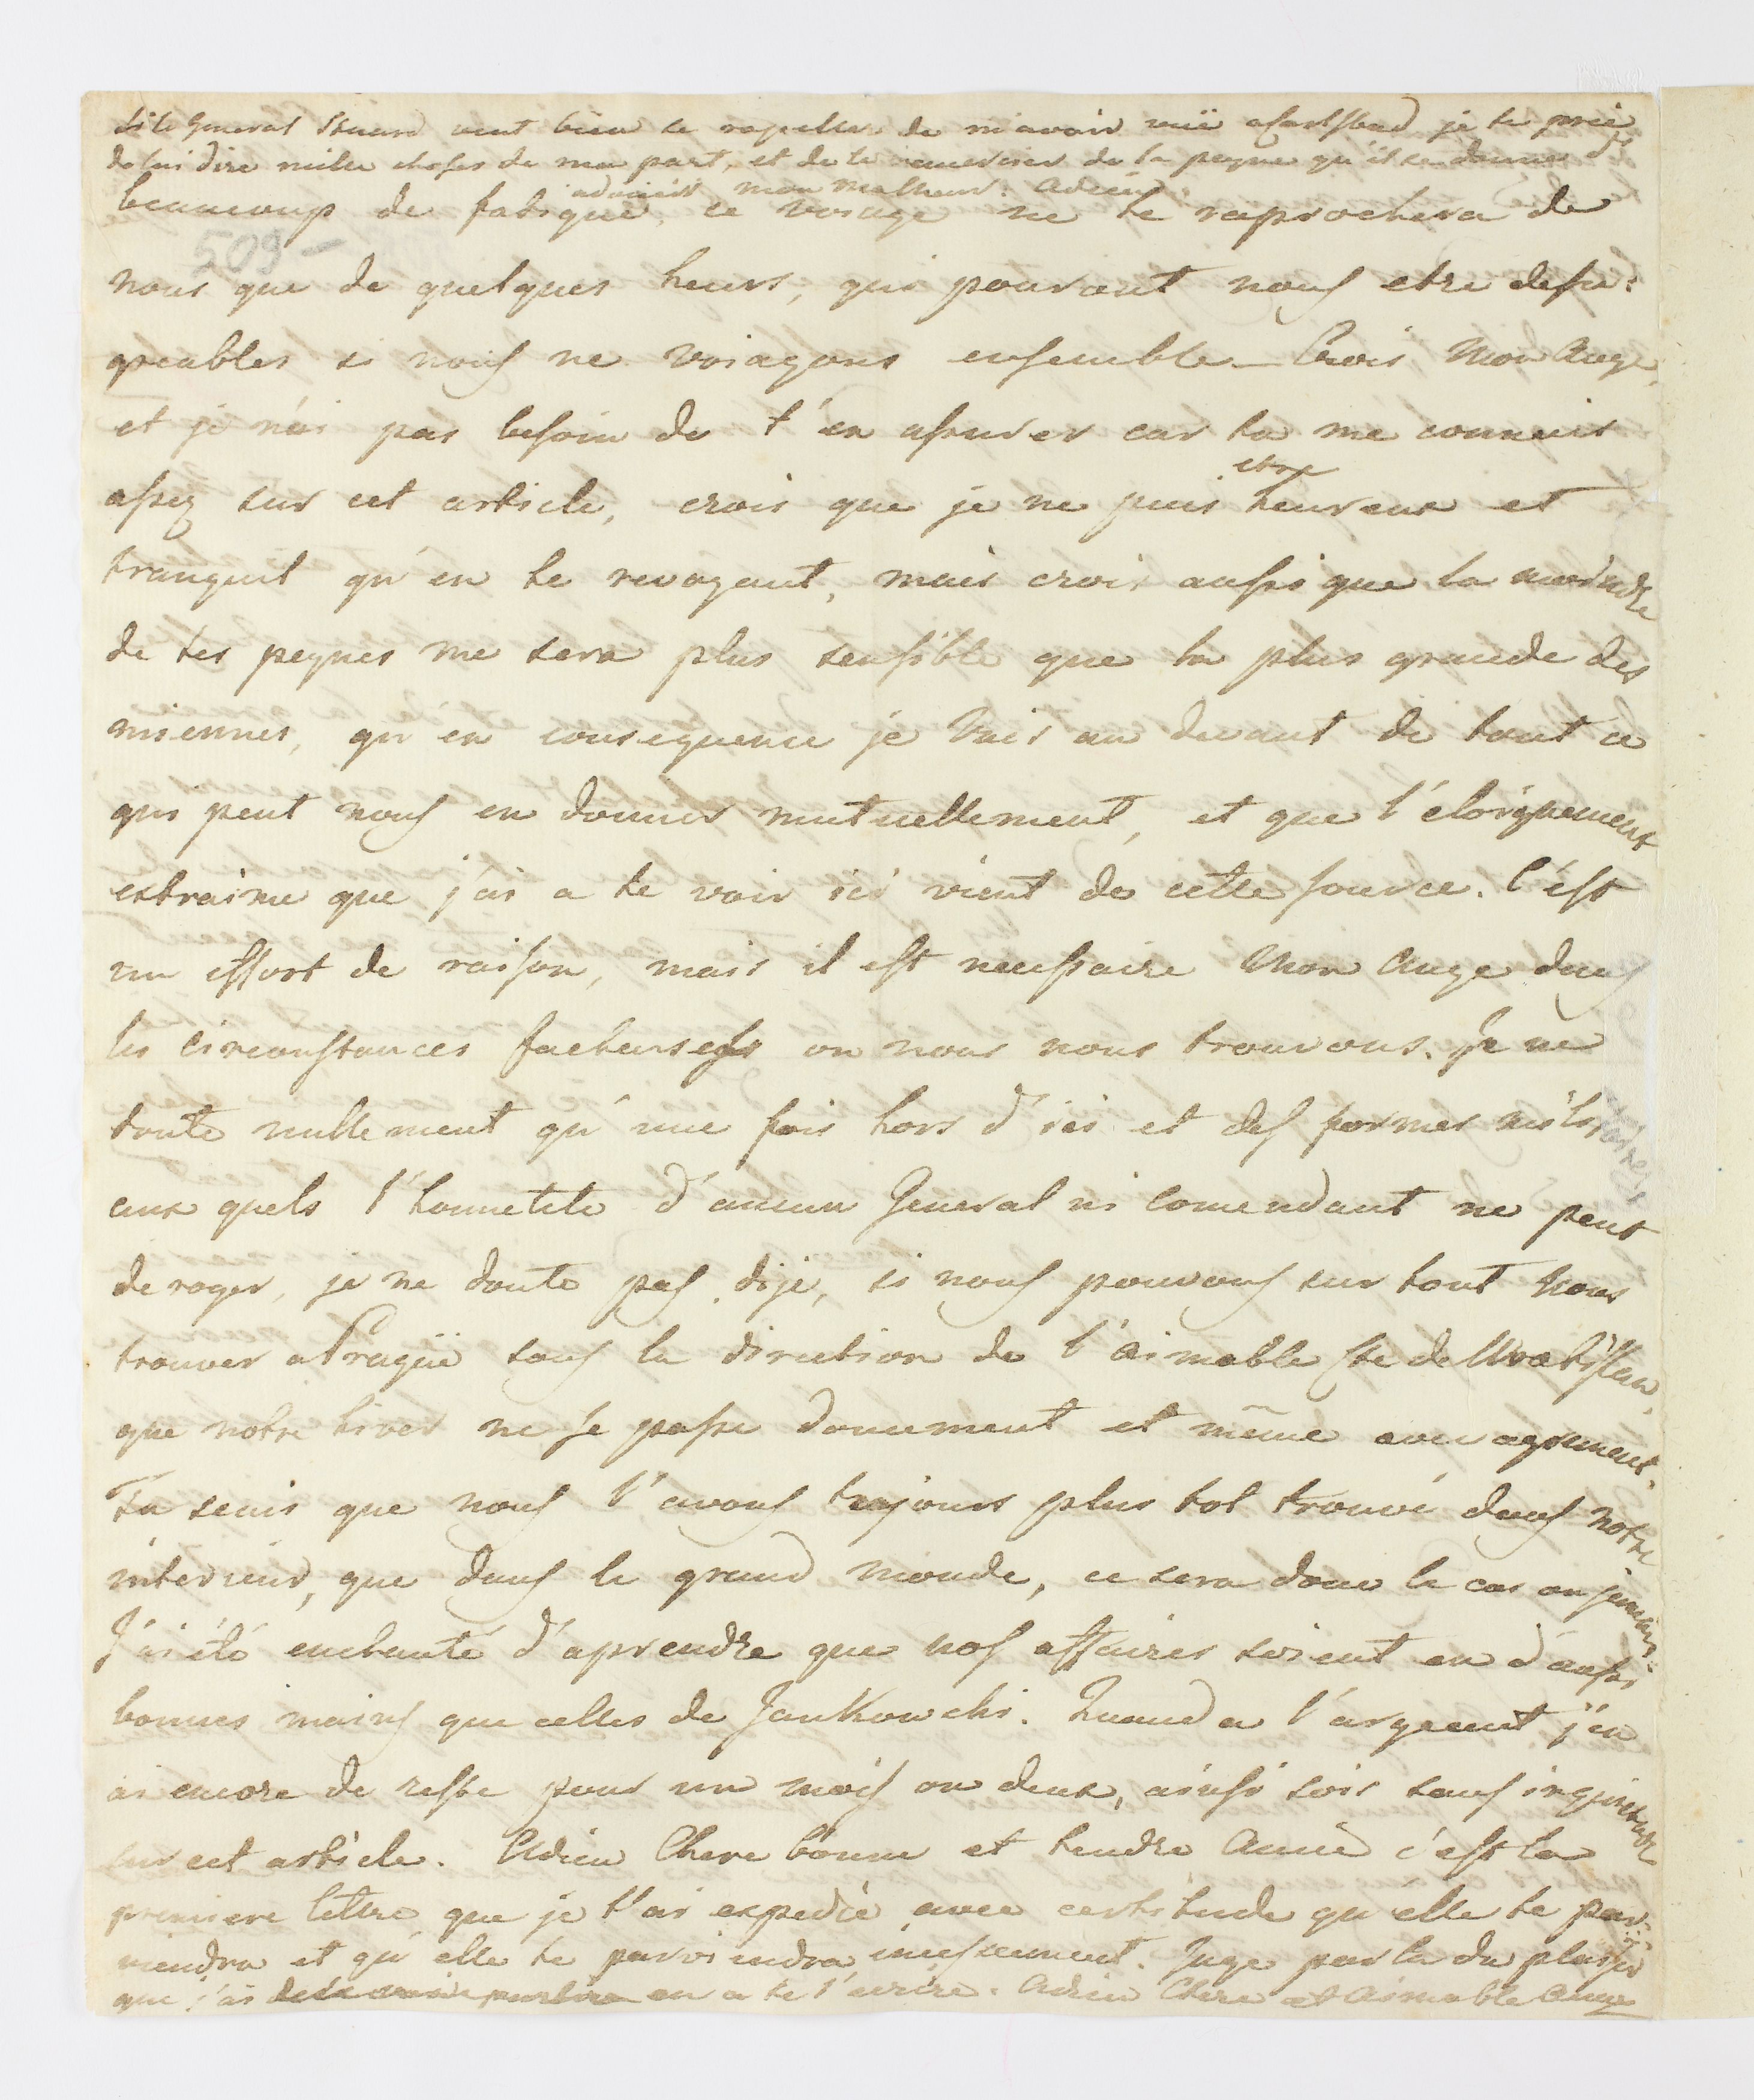 Si le General Stuard veut bien se rapeller de m'avoir vuë a Carlsbad je te prie
de lui dire mille choses de ma part, et de le remercier de la peyne qu'il se donne d'
adoucir mon malheur. Adieu.
beaucoup de fatigue, ce voiage ne te raprochera de
509 -
nous que de quelques heurs, qui pouront nous etre desa:
greables si nous ne voiagons ensemble – Crois Mon Ange,
et je n'ai pas besoin de t'en assurer car tu me connais
assez sur cet article, crois que je ne puis etre heureux et
tranquil qu'en te revoyant, mais crois aussi que la moindre
de tes peynes me sera plus sensible que la plus grande des
miennes, qu'en consequence je vais au devant de tout ce
qui peut nous en donner mutuellement, et que l'éloignement
extraime que j'ai a te voir ici vient de cette source. C'est
un effort de raison, mais il est necessaire Mon Ange dans
les circonstances facheuses ou nous nous trouvons. Je ne
doute nullement qu'une fois hors d'ici et des formes militaires
aux quels l'honnetete d'aucun General ni Comendant ne peut
deroger, je ne doute pas, dije, si nous pouvons sur tout nous
trouver a Pragüe sous la direction de l'aimable Cte de Wratislau,
que notre hiver ne se passe doucement et même avec agrement.
Tu sais que nous l'avons toujours plus tot trouvé dans notre
interieur, que dans le grand monde, ce sera donc le cas ou jamais.
J'ai été enchanté d'aprendre que nos affaires soient en d'aussi
bonnes mains que celles de Jankowski. Quand a l'argeant j'en
ai encore de reste pour un mois ou deux, ainsi sois sans inquietude
sur cet article. Adieu Chere bonne et tendre Amie c'est la
premiere lettre que je t'ai expedié avec certitude qu'elle te par:
viendra et qu'elle te parviendra incessament. Juge par la du plaisir
que j'ai eu a te l'ecrire. Adieu Chere et Aimable Ange